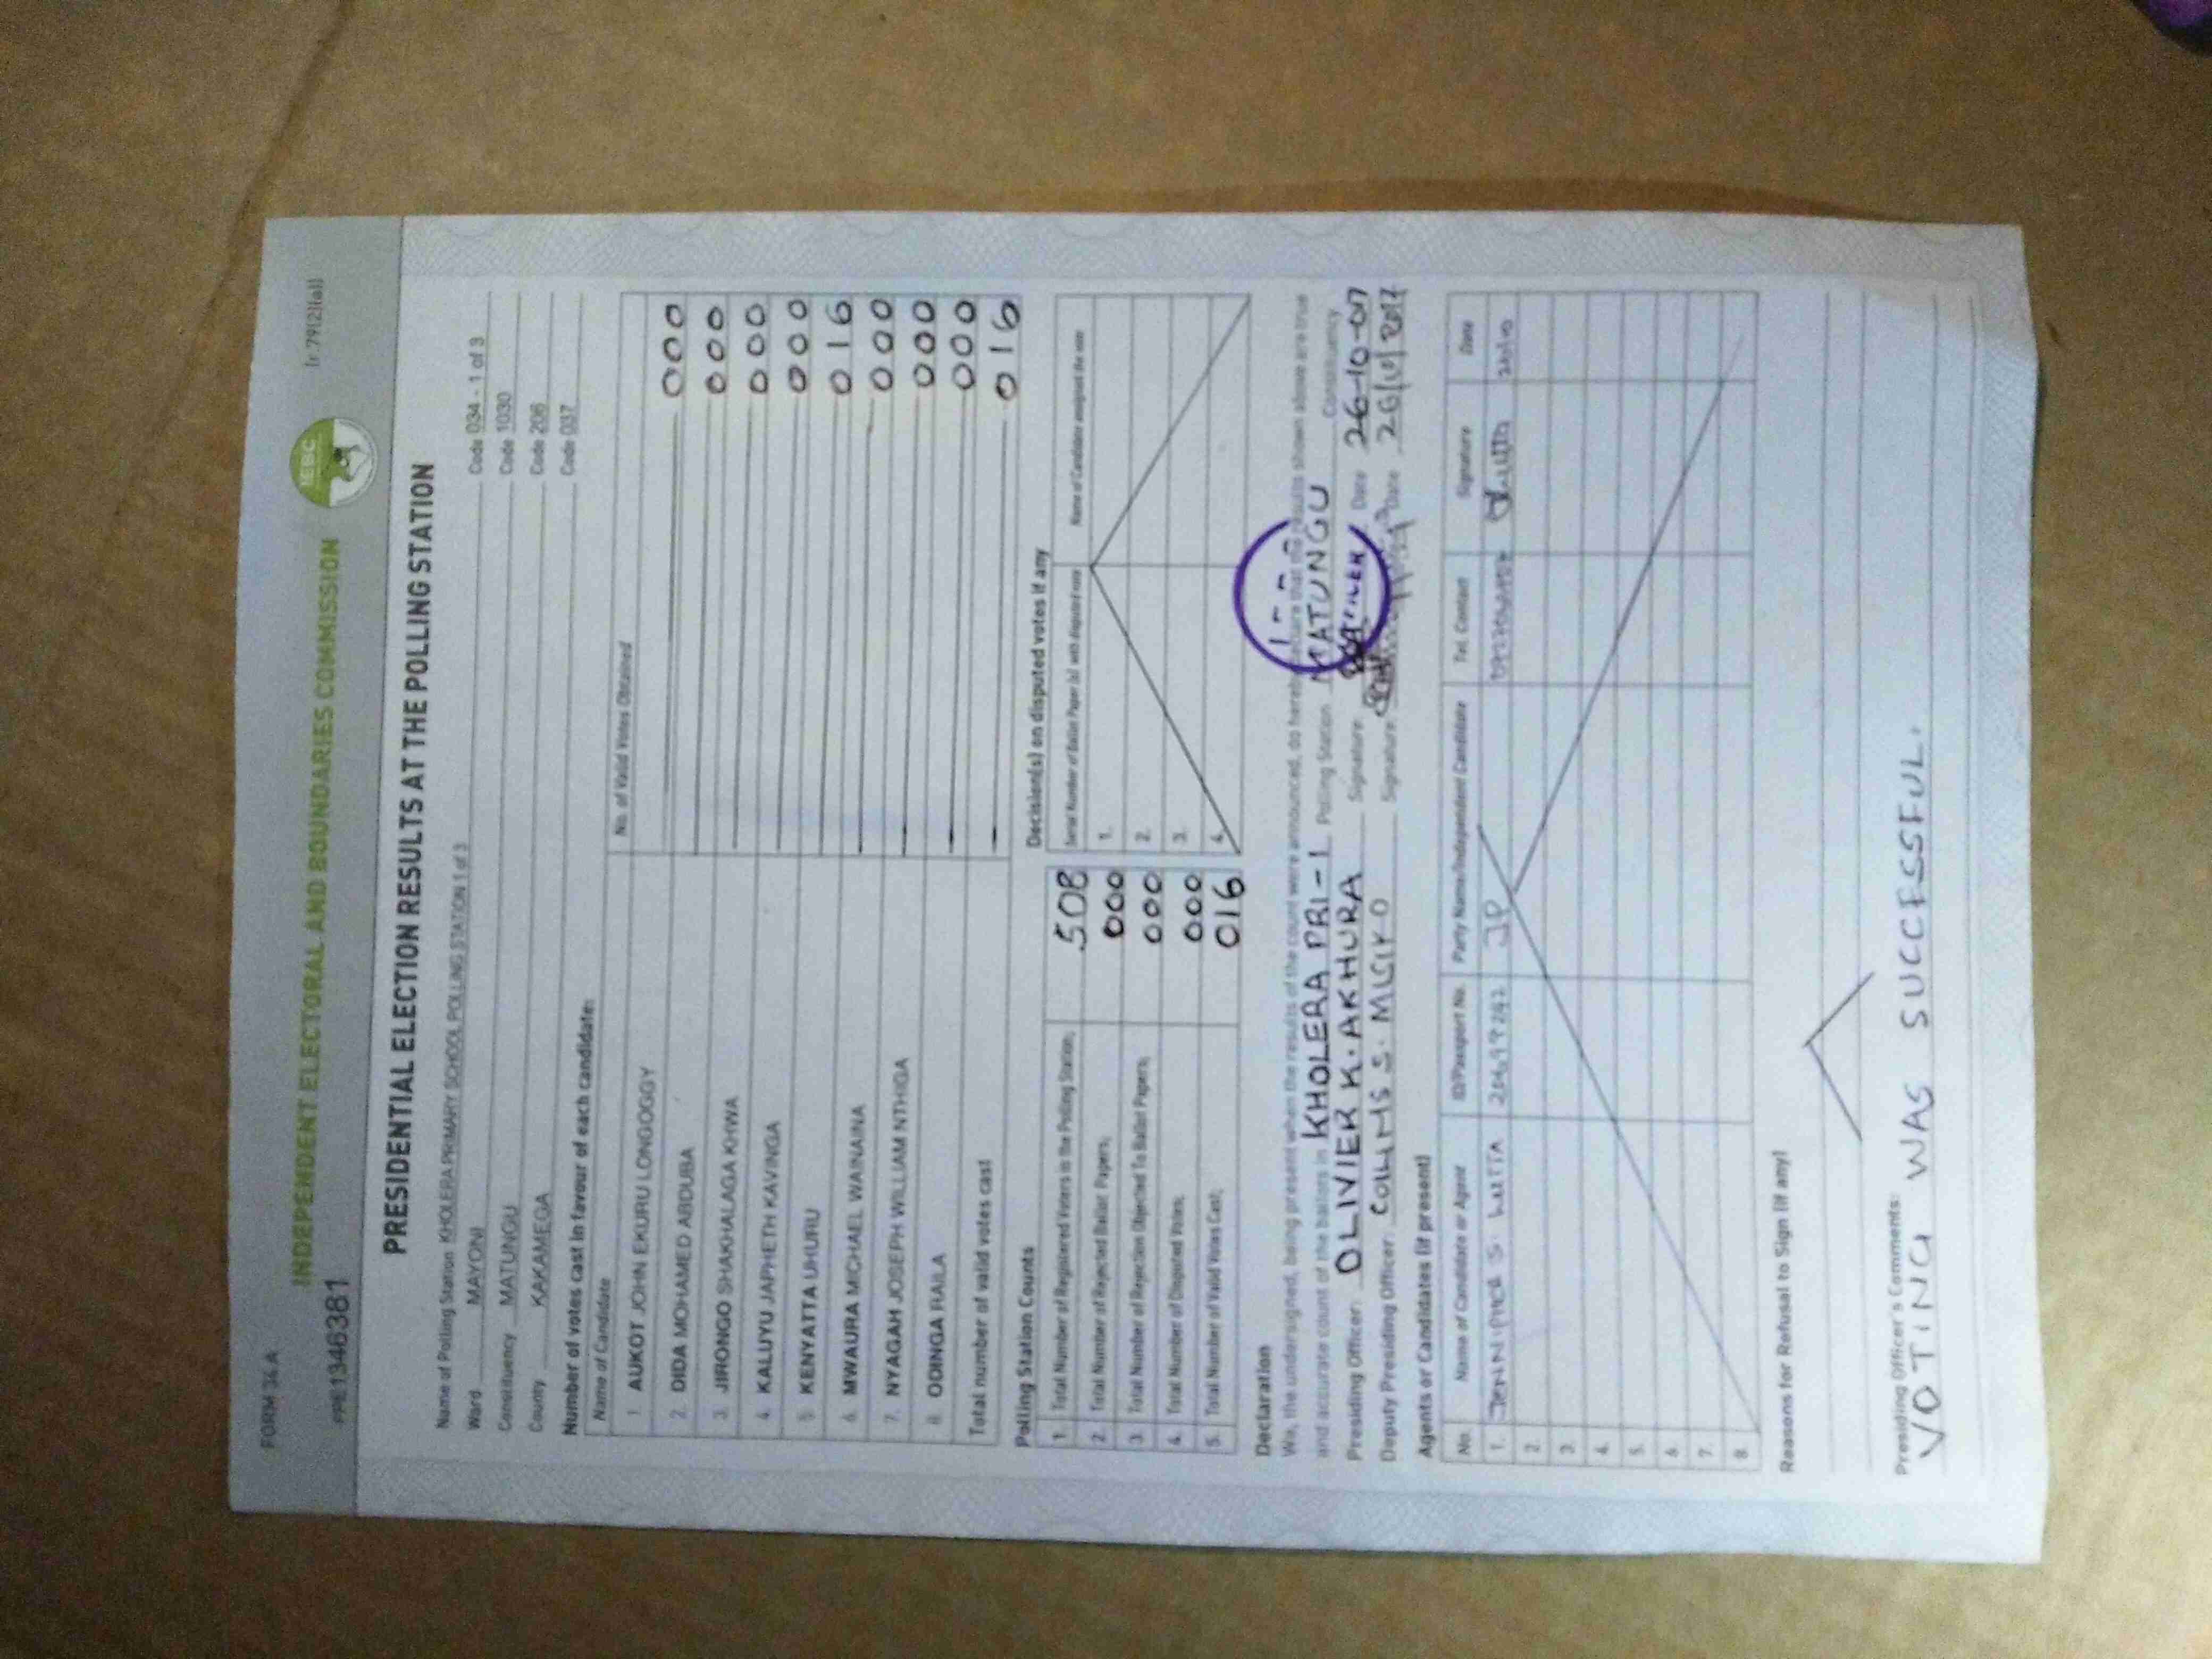 FORM 34A
(r.79(2)(a))
INDEPENDENT ELECTORAL AND BOUNDARIES COMMISSION
IEBC
PRE1346381
PRESIDENTIAL ELECTION RESULTS AT THE POLLING STATION
Name of Polling Station KHOLERA PRIMARY SCHOOL POLLING STATION 1 of 3 Code 034 - 1 of 3
Ward MAYONI Code 1030
Constituency MATUNGU Code 206
County KAKAMEGA Code 037
Number of votes cast in favour of each candidate:
Name of Candidate No. of Valid Votes Obtained
1. AUKOT JOHN EKURU LONGOGGY 000
2. DIDA MOHAMED ABDUBA 000
3. JIRONGO SHAKHALAGA KHWA 000
4. KALUYU JAPHETH KAVINGA 000
5. KENYATTA UHURU 016
6. MWAURA MICHAEL WAINAINA 000
7. NYAGAH JOSEPH WILLIAM NTHIGA 000
8. ODINGA RAILA 000
Total number of valid votes cast 016
Polling Station Counts
1. Total Number of Registered Voters in the Polling Station; 508
2. Total Number of Rejected Ballot Papers; 000
3. Total Number of Rejection Objected To Ballot Papers; 000
4. Total Number of Disputed Votes; 000
5. Total Number of Valid Votes Cast; 016
Decision(s) on disputed votes if any
Serial Number of Ballot Paper (s) with disputed vote Name of Candidate assigned the vote
1.
2.
3.
4.
Declaration
We, the undersigned, being present when the results of the count were announced, do hereby declare that the results shown above are true
and accurate count of the ballots in KHOLERA PRI - 1 Polling Station MATUNGU Constituency
Presiding Officer: OLIVIER K. AKHURA Signature Date 26-10-017
Deputy Presiding Officer: COLLINS S. Signature Date 26/10/2017
Agents or Candidates (if present)
No. Name of Candidate or Agent ID/Passport No. Party Name/Independent Candidate Tel. Contact Signature Date
1. S. LUTTA JP
2.
3.
4.
5.
6.
7.
8.
Reasons for Refusal to Sign (if any)
Presiding Officer's Comments:
VOTING WAS SUCCESSFUL.